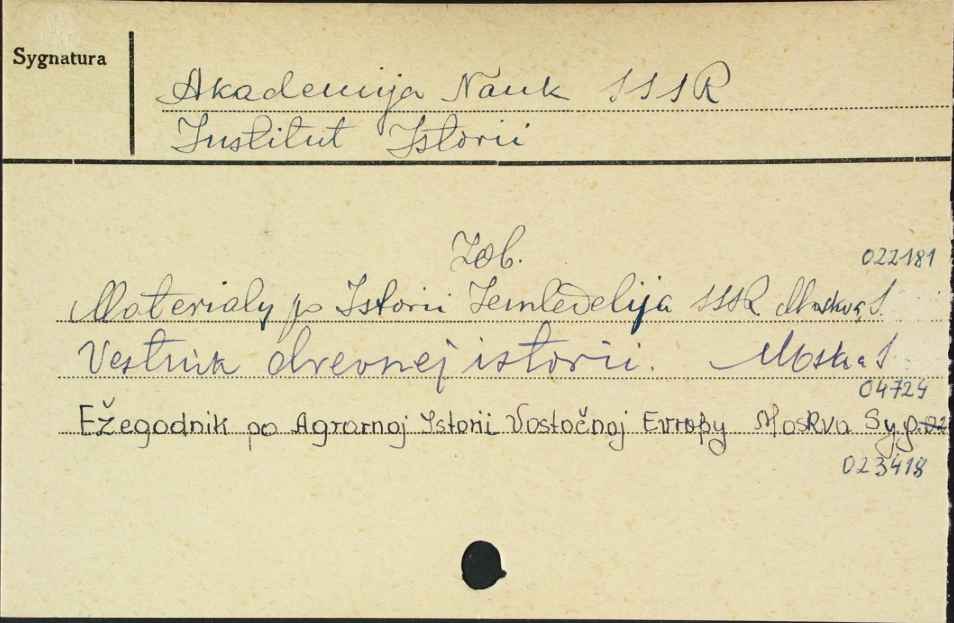 Sygnatura
Akademija Nauk SSSR
Institut Istorii
Zob.
022181
Materialy po Istorii Zemledelija SSSR Moskva S.
Vestnik drevnej istorii. Moskva S.
04724
Ežegodnik po Agrarnoj Istorii Vostočnoj Evropy Moskva Syg.
023418